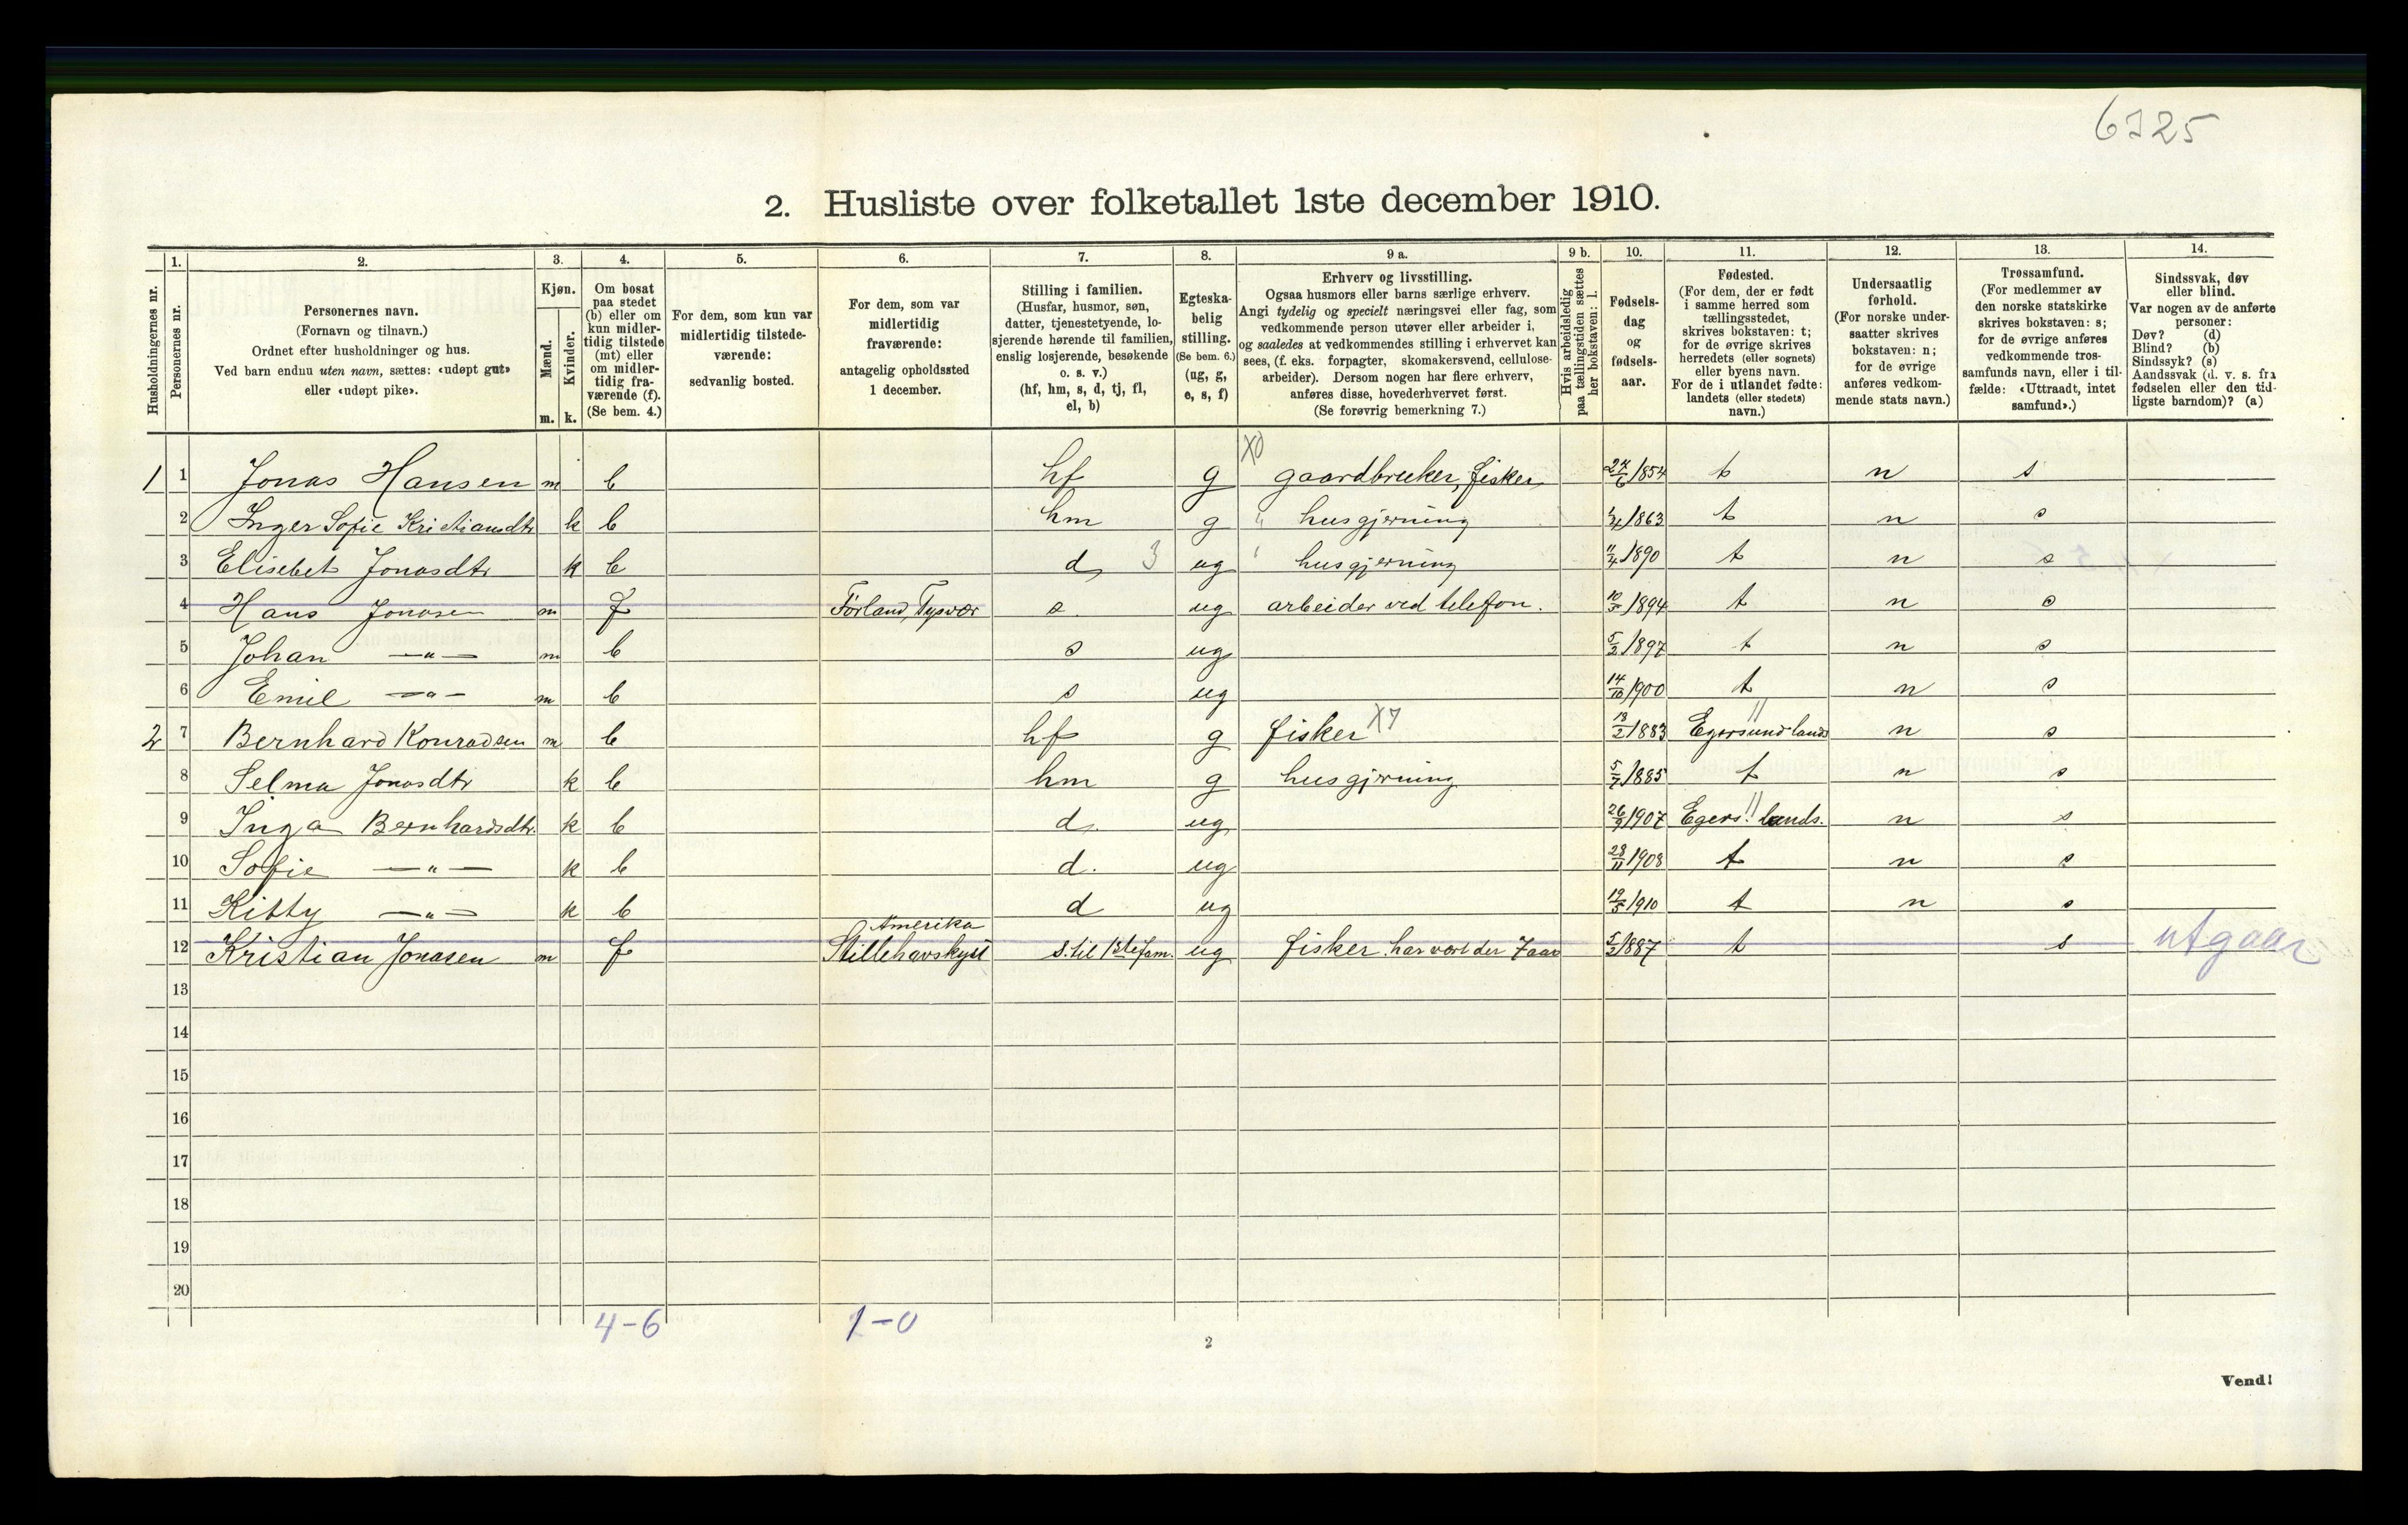 6725
2. Husliste over folketallet 1ste december 1910.
Husholdningernes nr.
1. Personernes nr.
2. Personernes navn.
(Fornavn og tilnavn.)
Ordnet efter husholdninger og hus.
Ved barn endnu uten navn, sættes: «udøpt gut»
eller «udøpt pike».
3. Kjøn.
Mænd. Kvinder.
m. k.
4. Om bosat
paa stedet
(b) eller om
kun midler-
tidig tilstede
(mt) eller
om midler-
tidig fra-
værende (f).
(Se bem. 4.)
5. For dem, som kun var
midlertidig tilstede-
værende:
sedvanlig bosted.
6. For dem, som var
midlertidig
fraværende:
antagelig opholdssted
1 december.
7. Stilling i familien.
(Husfar, husmor, søn,
datter, tjenestetyende, lo-
sjerende hørende til familien,
enslig losjerende, besøkende
o. s. v.)
(hf, hm, s, d, tj, fl,
el, b)
8. Egteska-
belig
stilling.
(Se bem. 6.)
(ug, g,
e, s, f)
9 a. Erhverv og livsstilling.
Ogsaa husmors eller barns særlige erhverv.
Angi tydelig og specielt næringsvei eller fag, som
vedkommende person utøver eller arbeider i,
og saaledes at vedkommendes stilling i erhvervet kan
sees, (f. eks. forpagter, skomakersvend, cellulose-
arbeider). Dersom nogen har flere erhverv,
anføres disse, hovederhvervet først.
(Se forøvrig bemerkning 7.)
9 b. Hvis arbeidsledig
paa tællingstiden sættes
her bokstaven: l.
10. Fødsels-
dag
og
fødsels-
aar.
11. Fødested.
(For dem, der er født
i samme herred som
tællingsstedet,
skrives bokstaven: t;
for de øvrige skrives
herredets (eller sognets)
eller byens navn.
For de i utlandet fødte:
landets (eller stedets)
navn.)
12. Undersaatlig
forhold.
(For norske under-
saatter skrives
bokstaven: n;
for de øvrige
anføres vedkom-
mende stats navn.)
13. Trossamfund.
(For medlemmer av
den norske statskirke
skrives bokstaven: s;
for de øvrige anføres
vedkommende tros-
samfunds navn, eller i til-
fælde: «Uttraadt, intet
samfund».)
14. Sindssvak, døv
eller blind.
Var nogen av de anførte
personer:
Døv? (d)
Blind? (b)
Sindssyk? (s)
Aandssvak (d. v. s. fra
fødselen eller den tid-
ligste barndom)? (a)
X0
1 1 Jonas Hansen m b hf g gaardbruker, fisker 24/6 1854 t n s
2 Inger Sofie Kristiansdtr k b hm g husgjerning 1863 t n s
3 Elisebet Jonasdtr k b d 3 ug husgjerning 11/4 1890 t n s
4 Hans Jonasen m f Förland, Tysvær s ug arbeider ved telefon. 10/5 1894 t n s
5 Johan —"— m b s ug 5/2 1897 t n s
6 Emil —"— m b s ug 14/10 1900 t n s
2 7 Bernhard Konradsen m b hf g fisker X7 13/2 1883 Egersund lands n s
8 Selma Jonasdtr k b hm g husgjerning 5/7 1885 t n s
9 Inga Bernhardsdtr. k b d. ug 26/9 1907 Egers. lands. n s
10 Sofie —"— k b d. ug 28/11 1908 t n s
11 Kitty —"— k b d ug 19/5 1910 t n s
12 Kristian Jonasen m f Amerika Stillehavskyst s. til 1ste fam. ug fisker. har vært der 7 aar 5/2 1887 t s utgaar
13
14
15
16
17
18
19
20
4-6 1-0
2
Vend!